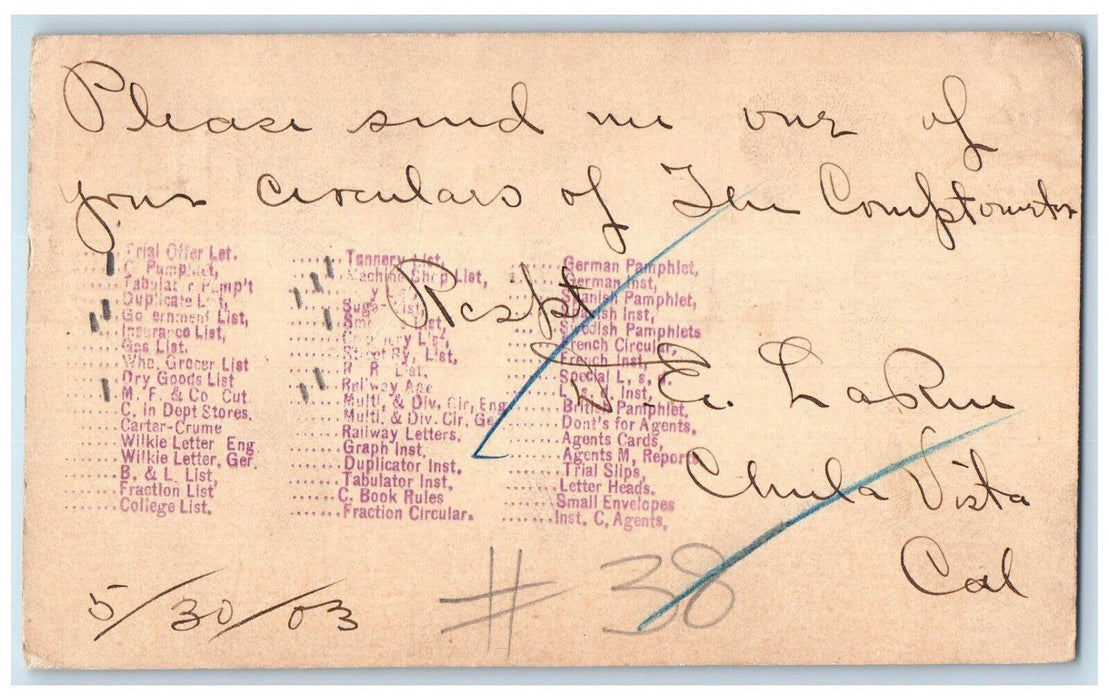 Please send me one of
your circulars of The Comptometer
Respt
E. LaRue
Chula Vista
Cal
5/30/03
# 38
Trial Offer Let.
C. Pamphlet,
Tabulator Pamp't
Duplicate List,
Government List,
Insurance List,
Gas List.
Who. Grocer List
Dry Goods List
M. F. & Co Cut
C. in Dept Stores.
Carter-Crume
Wilkie Letter Eng
Wilkie Letter, Ger.
B. & L. List,
Fraction List
College List.
Tannery List,
Machine Shop List,
Sugar List
List,
List,
Street Ry. List,
R. R. List.
Railway Age
Multi. & Div. Cir, Eng
Multi. & Div. Cir. Ge
Railway Letters.
Graph Inst,
Duplicator Inst.
Tabulator Inst.
C. Book Rules
Fraction Circular.
German Pamphlet,
German Inst,
Spanish Pamphlet,
Spanish Inst,
Swedish Pamphlets
French Circular,
French Inst,
Special L. s.
Inst,
British Pamphlet,
Dont's for Agents,
Agents Cards,
Agents M, Reports
Trial Slips,
Letter Heads.
Small Envelopes
Inst. C, Agents,